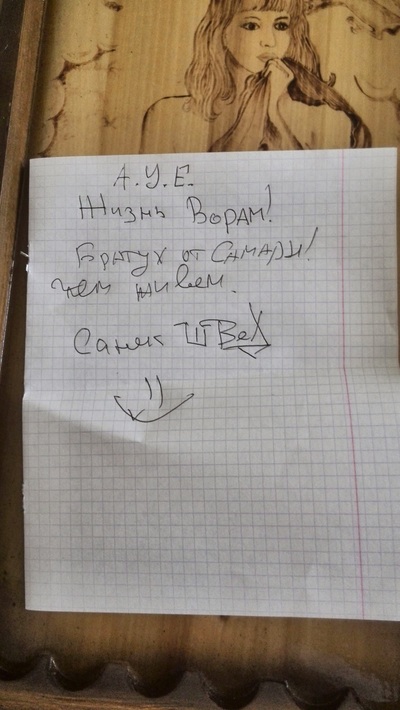 А.У.Е.
Жизнь Ворам!
Братух от Самары!
чем живем.
Санек ШВеХ
))